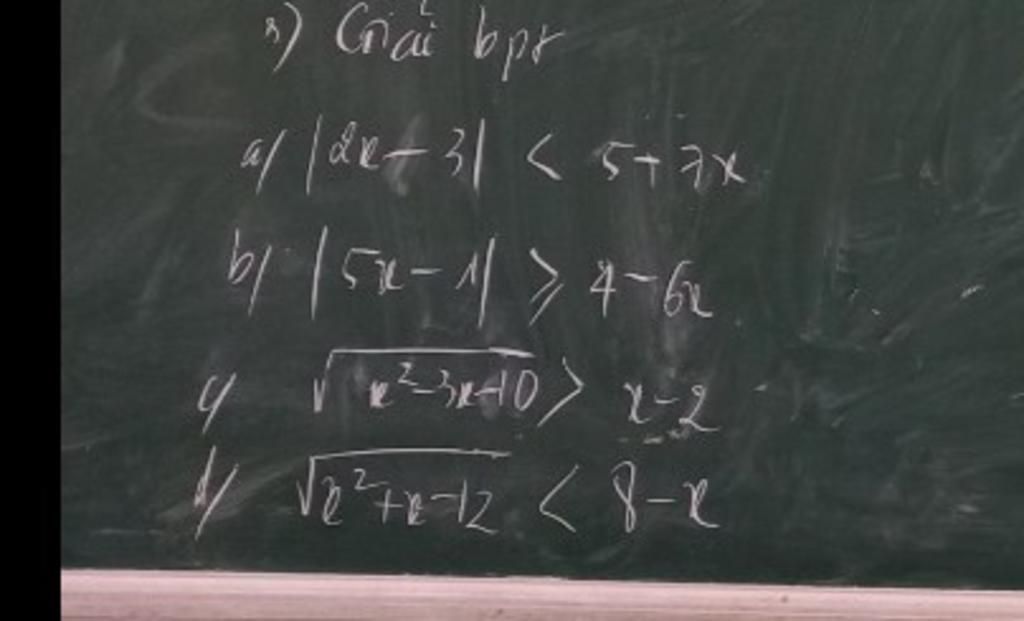 3) Giải bpt
a/ |2x - 3| < 5 + 7x
b/ |5x - 1| ≥ 4 - 6x
c/ √(x² - 3x - 10) > x - 2
d/ √(x² + x - 12) < 8 - x